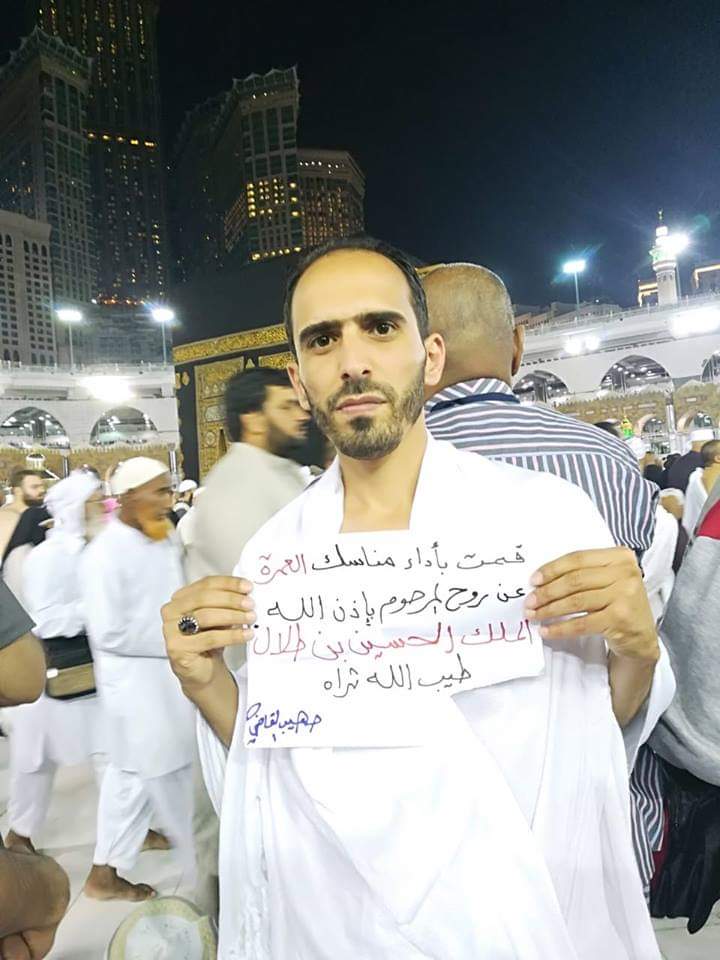 قمت بأداء مناسك العمرة
عن روح المرحوم بإذن الله
الملك الحسين بن طلال
طيب الله ثراه
صهيب القاضي